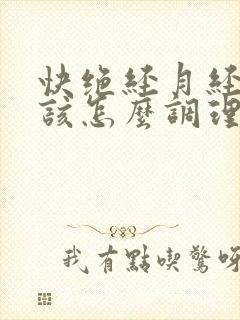 快绝经月经
該怎麼調理
我有點喫驚呀